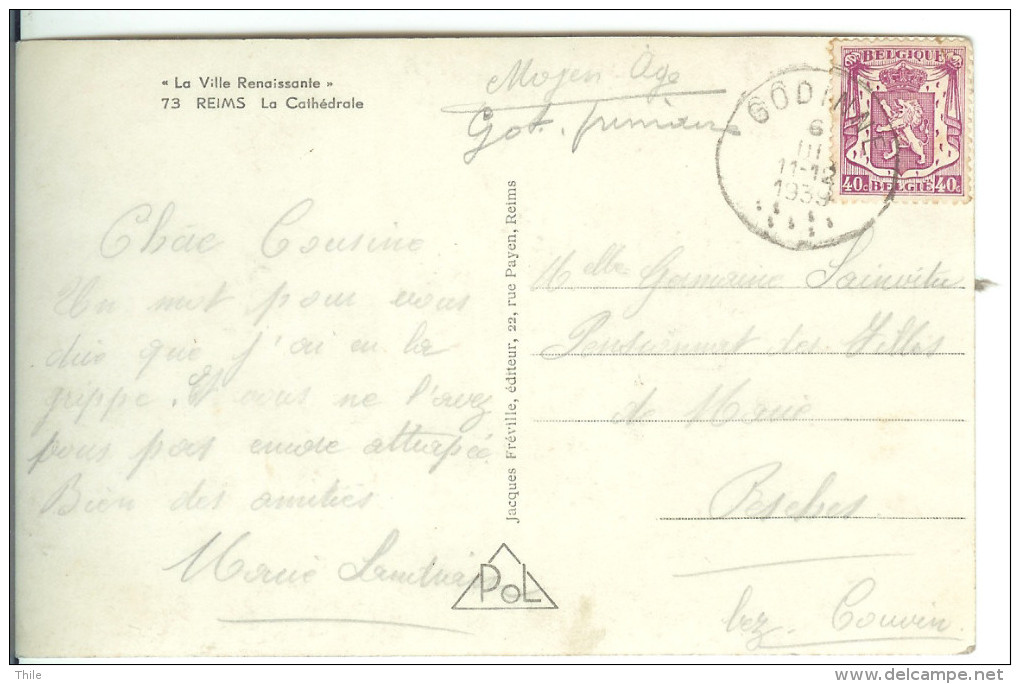 « La Ville Renaissante »
73 REIMS La Cathédrale
Moyen Age
Got. primaire
BELGIQUE
40c BELGIË 40c
GODINNE
6
III
11-12
1939
Chère Cousine
Un mot pour vous
dire que j'ai eu la
grippe. Et vous ne l'avez
pas encore attrapée
Bien des amitiés
Marie
Jacques Fréville, éditeur, 22, rue Payen, Reims
POL
Melle Germaine
Pensionnat des Filles
de Marie
Pesches
lez. Couvin
Thile
www.delcampe.net